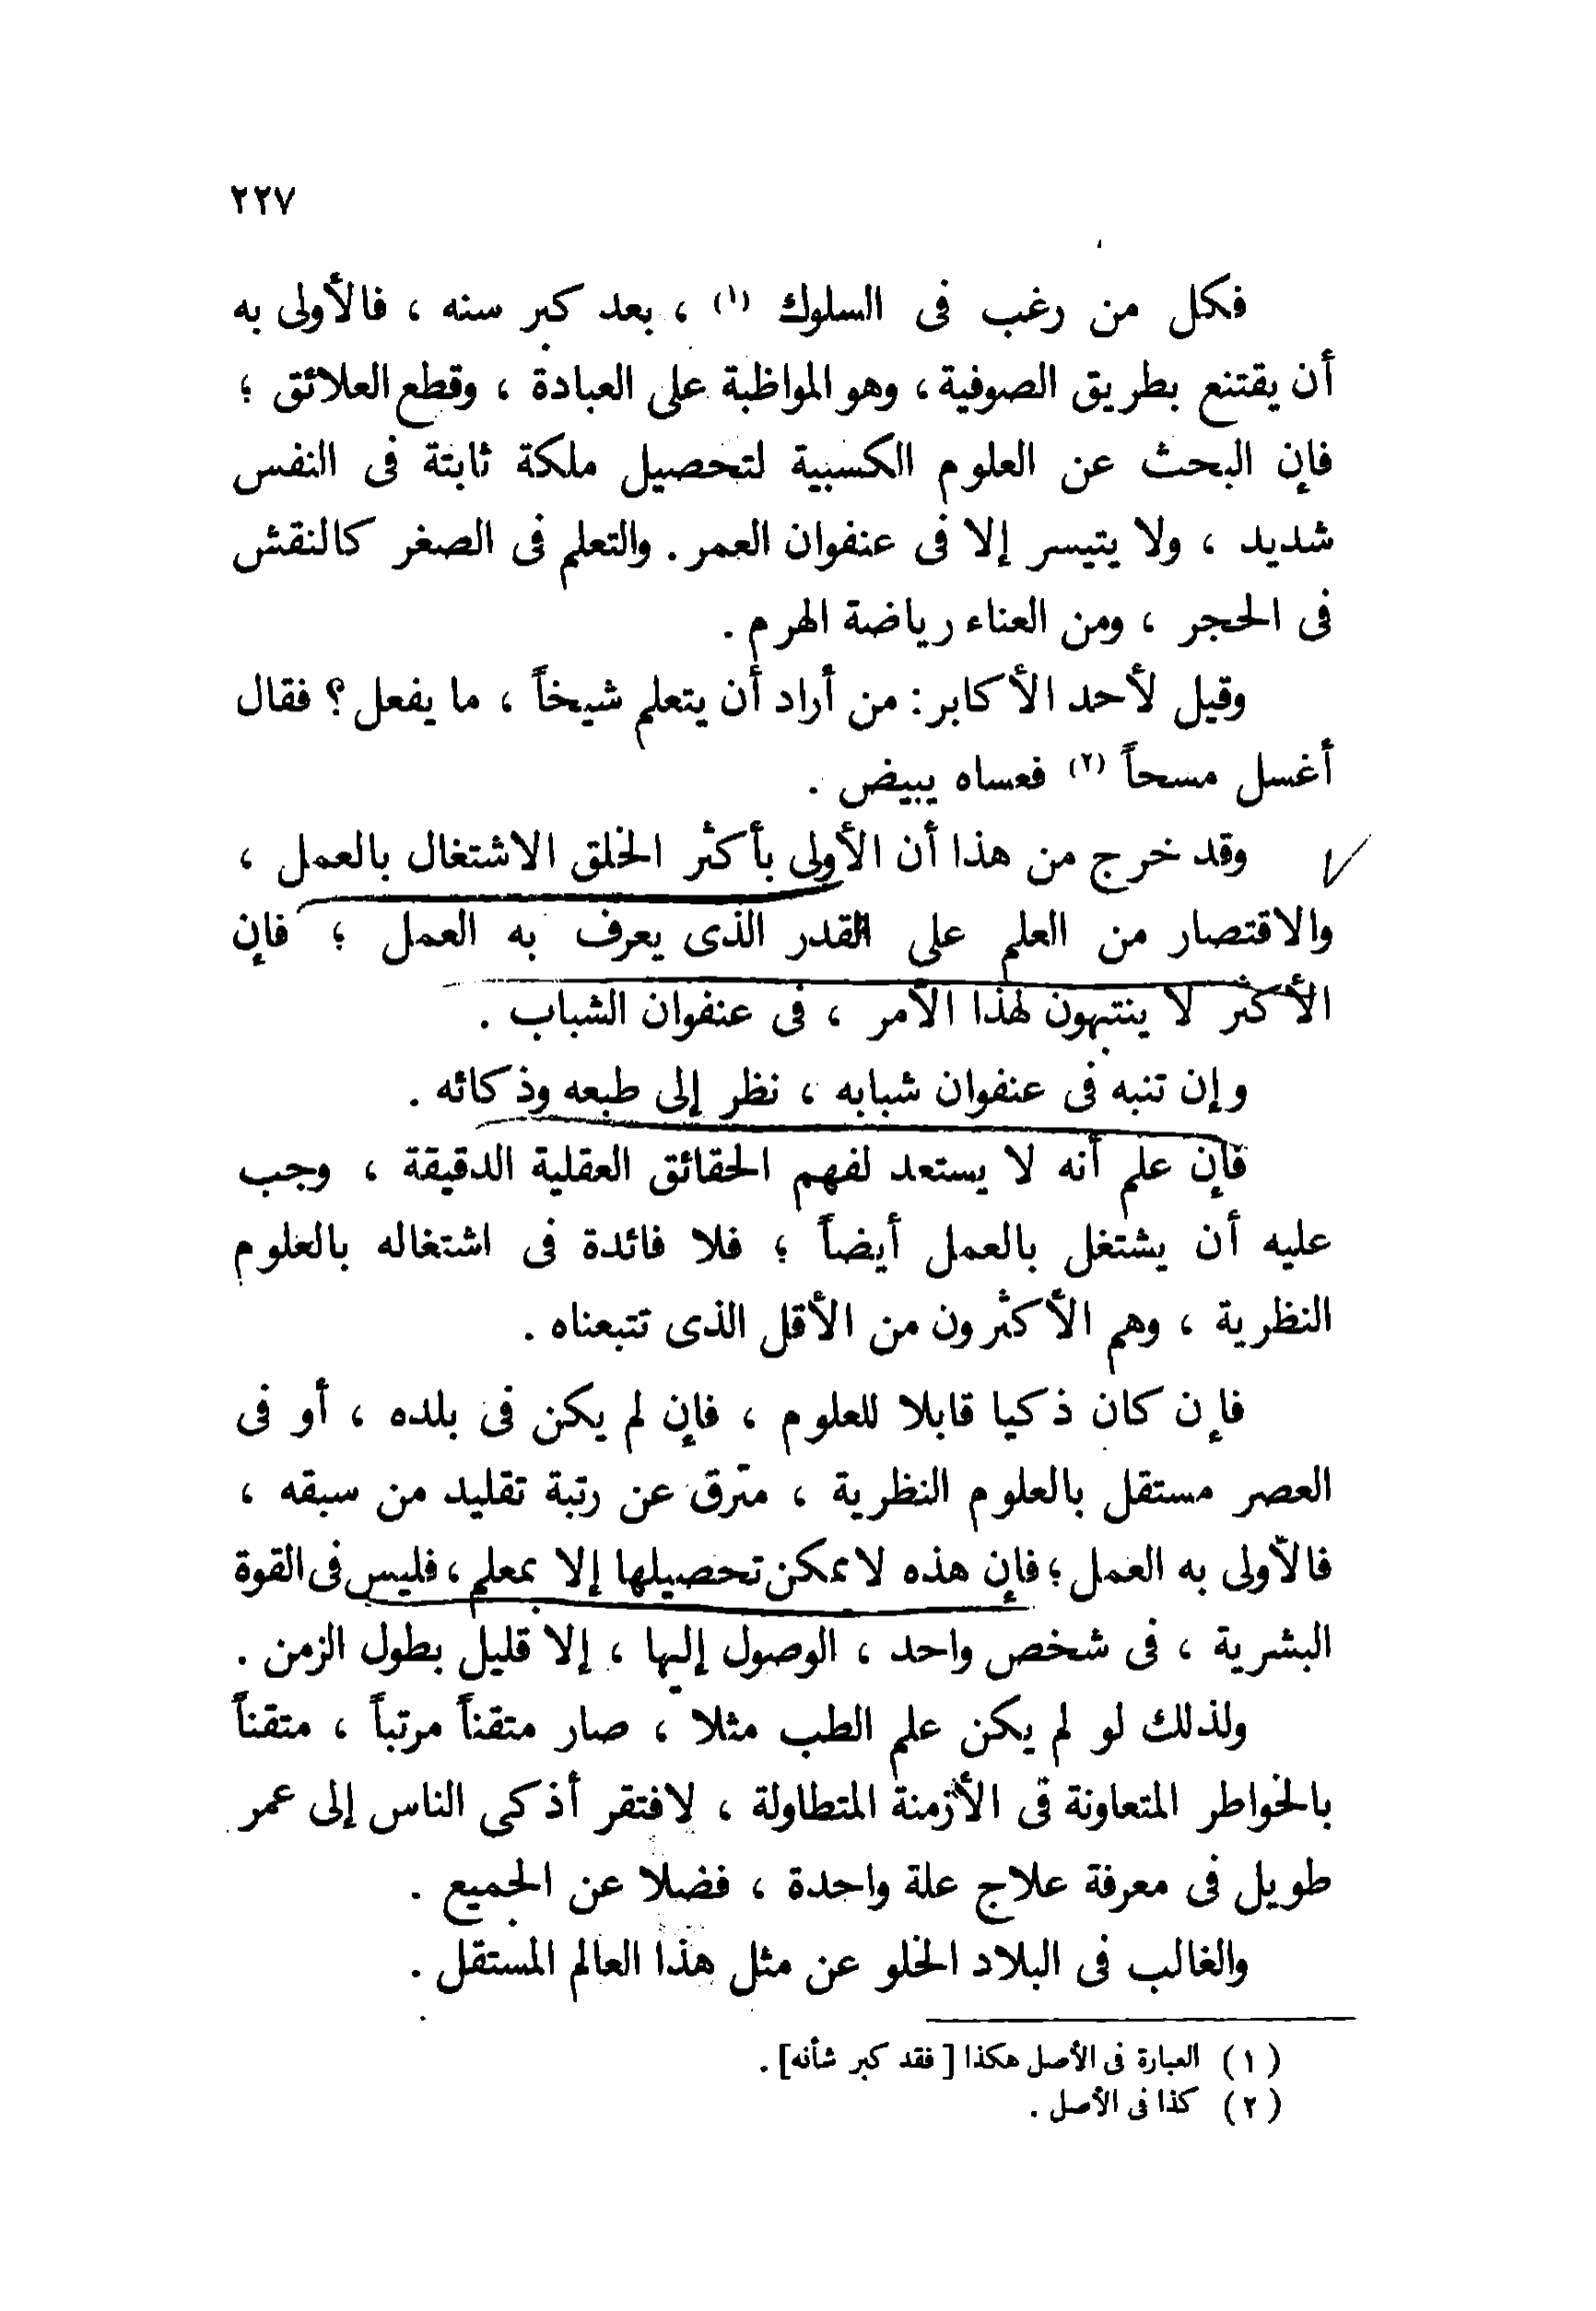 ٢٢٧
فكل من رغب فى السلوك (١) ، بعد كبر سنه ، فالأولى به
أن يقتنع بطريق الصوفية ، وهو المواظبة على العبادة ، وقطع العلائق ؛
فإن البحث عن العلوم الكسبية لتحصيل ملكة ثابتة فى النفس
شديد ، ولا يتيسر إلا فى عنفوان العمر . والتعلم فى الصغر كالنقش
فى الحجر ، ومن العناء رياضة الهرم .
وقيل لأحد الأكابر : من أراد أن يتعلم شيخاً ، ما يفعل ؟ فقال
أغسل مسحاً (٢) فعساه يبيض .
وقد خرج من هذا أن الأولى بأكثر الخلق الاشتغال بالعمل ،
والاقتصار من العلم على القدر الذى يعرف به العمل ؛ فإن
الأكثر لا ينتبهون لهذا الأمر ، فى عنفوان الشباب .
وإن تنبه فى عنفوان شبابه ، نظر إلى طبعه وذكائه .
فإن علم أنه لا يستعد لفهم الحقائق العقلية الدقيقة ، وجب
عليه أن يشتغل بالعمل أيضاً ؛ فلا فائدة فى اشتغاله بالعلوم
النظرية ، وهم الأكثرون من الأقل الذى تتبعناه .
فإن كان ذكيا قابلا للعلوم ، فإن لم يكن فى بلده ، أو فى
العصر مستقل بالعلوم النظرية ، مترق عن رتبة تقليد من سبقه ،
فالأولى به العمل ؛ فإن هذه لا يمكن تحصيلها إلا بمعلم ، فليس فى القوة
البشرية ، فى شخص واحد ، الوصول إليها ، إلا قليل بطول الزمن .
ولذلك لو لم يكن علم الطب مثلا ، صار متقناً مرتباً ، متقناً
بالخواطر المتعاونة فى الأزمنة المتطاولة ، لافتقر أذكى الناس إلى عمر
طويل فى معرفة علاج علة واحدة ، فضلا عن الجميع .
والغالب فى البلاد الخلو عن مثل هذا العالم المستقل .
(١) العبارة فى الأصل هكذا [ فقد كبر شأنه] .
(٢) كذا فى الأصل .